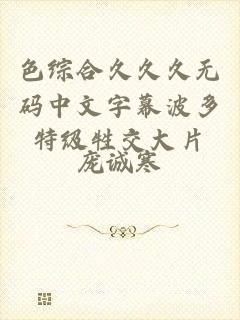 色综合久久久无
码中文字幕波多
特级牲交大片
庞诚寒